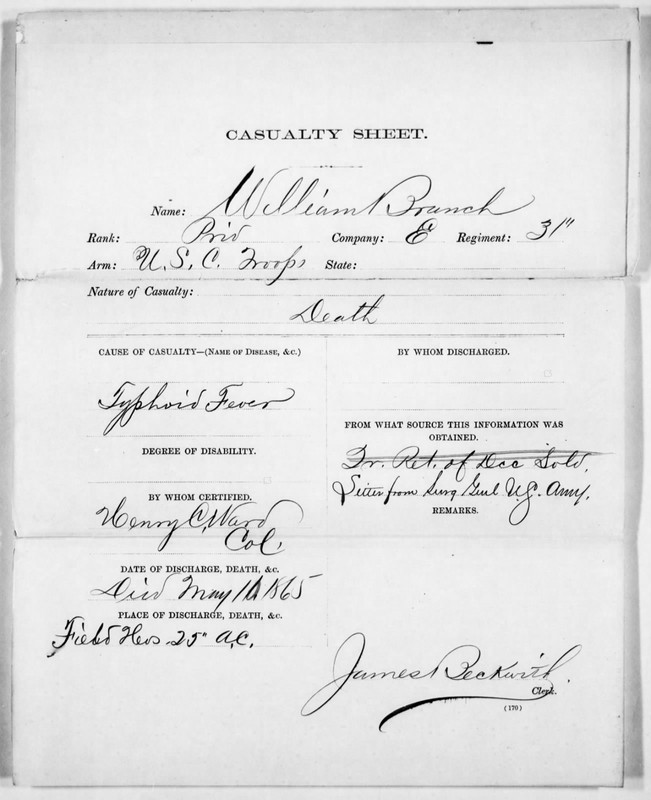 CASUALTY SHEET.
Name: William Branch
Rank: Priv Company: E Regiment: 31"
Arm: U. S. C. Troops State:
Nature of Casualty:
Death
CAUSE OF CASUALTY—(NAME OF DISEASE, &C.)
Typhoid Fever
DEGREE OF DISABILITY.
BY WHOM CERTIFIED.
Henry C. Ward
Col.
DATE OF DISCHARGE, DEATH, &C.
Died May 1865
PLACE OF DISCHARGE, DEATH, &C.
Field Hos. 25" A.C.
BY WHOM DISCHARGED.
FROM WHAT SOURCE THIS INFORMATION WAS
OBTAINED.
Fr. Ret. of Dec Sold.
Letter from Surg Genl U.S. Army.
REMARKS.
James Beckwith.
Clerk.
(170)